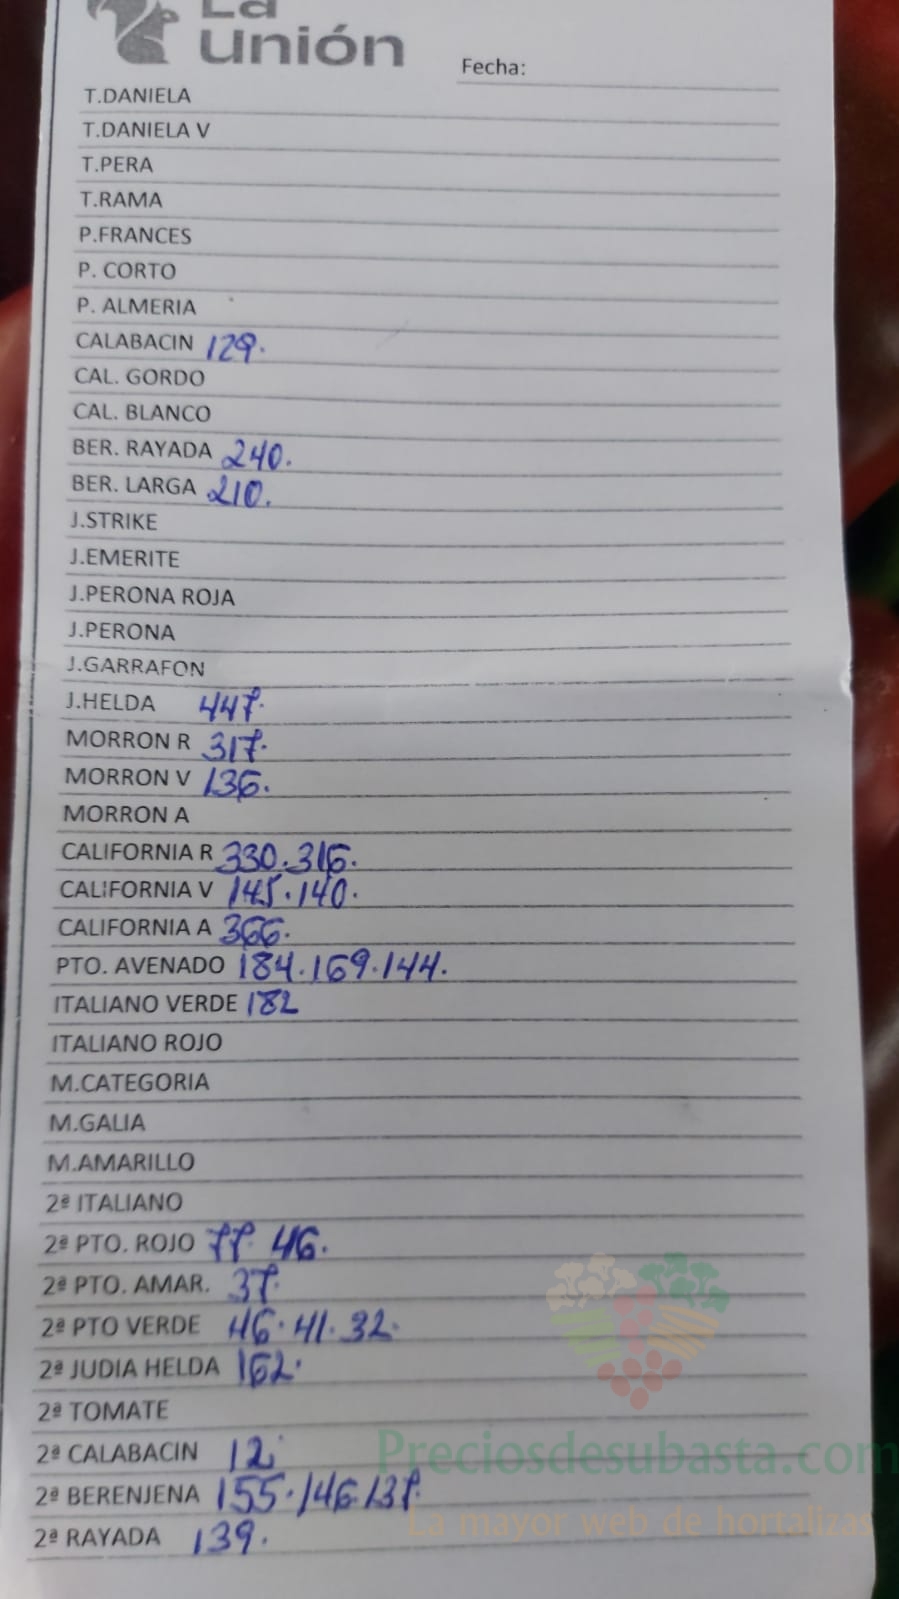 La
Unión
Fecha:
T.DANIELA
T.DANIELA V
T.PERA
T.RAMA
P.FRANCES
P. CORTO
P. ALMERIA
CALABACIN 129.
CAL. GORDO
CAL. BLANCO
BER. RAYADA 240.
BER. LARGA 210.
J.STRIKE
J.EMERITE
J.PERONA ROJA
J.PERONA
J.GARRAFON
J.HELDA 447.
MORRON R 317.
MORRON V 136.
MORRON A
CALIFORNIA R 330.316.
CALIFORNIA V 145.140.
CALIFORNIA A 366.
PTO. AVENADO 184.169.144.
ITALIANO VERDE 182
ITALIANO ROJO
M.CATEGORIA
M.GALIA
M.AMARILLO
2ª ITALIANO
2ª PTO. ROJO 77. 46.
2ª PTO. AMAR. 37.
2ª PTO VERDE 46.41.32.
2ª JUDIA HELDA 162.
2ª TOMATE
2ª CALABACIN 12.
2ª BERENJENA 155.146.137.
2ª RAYADA 139.
Preciosdesubasta.com
La mayor web de hortalizas